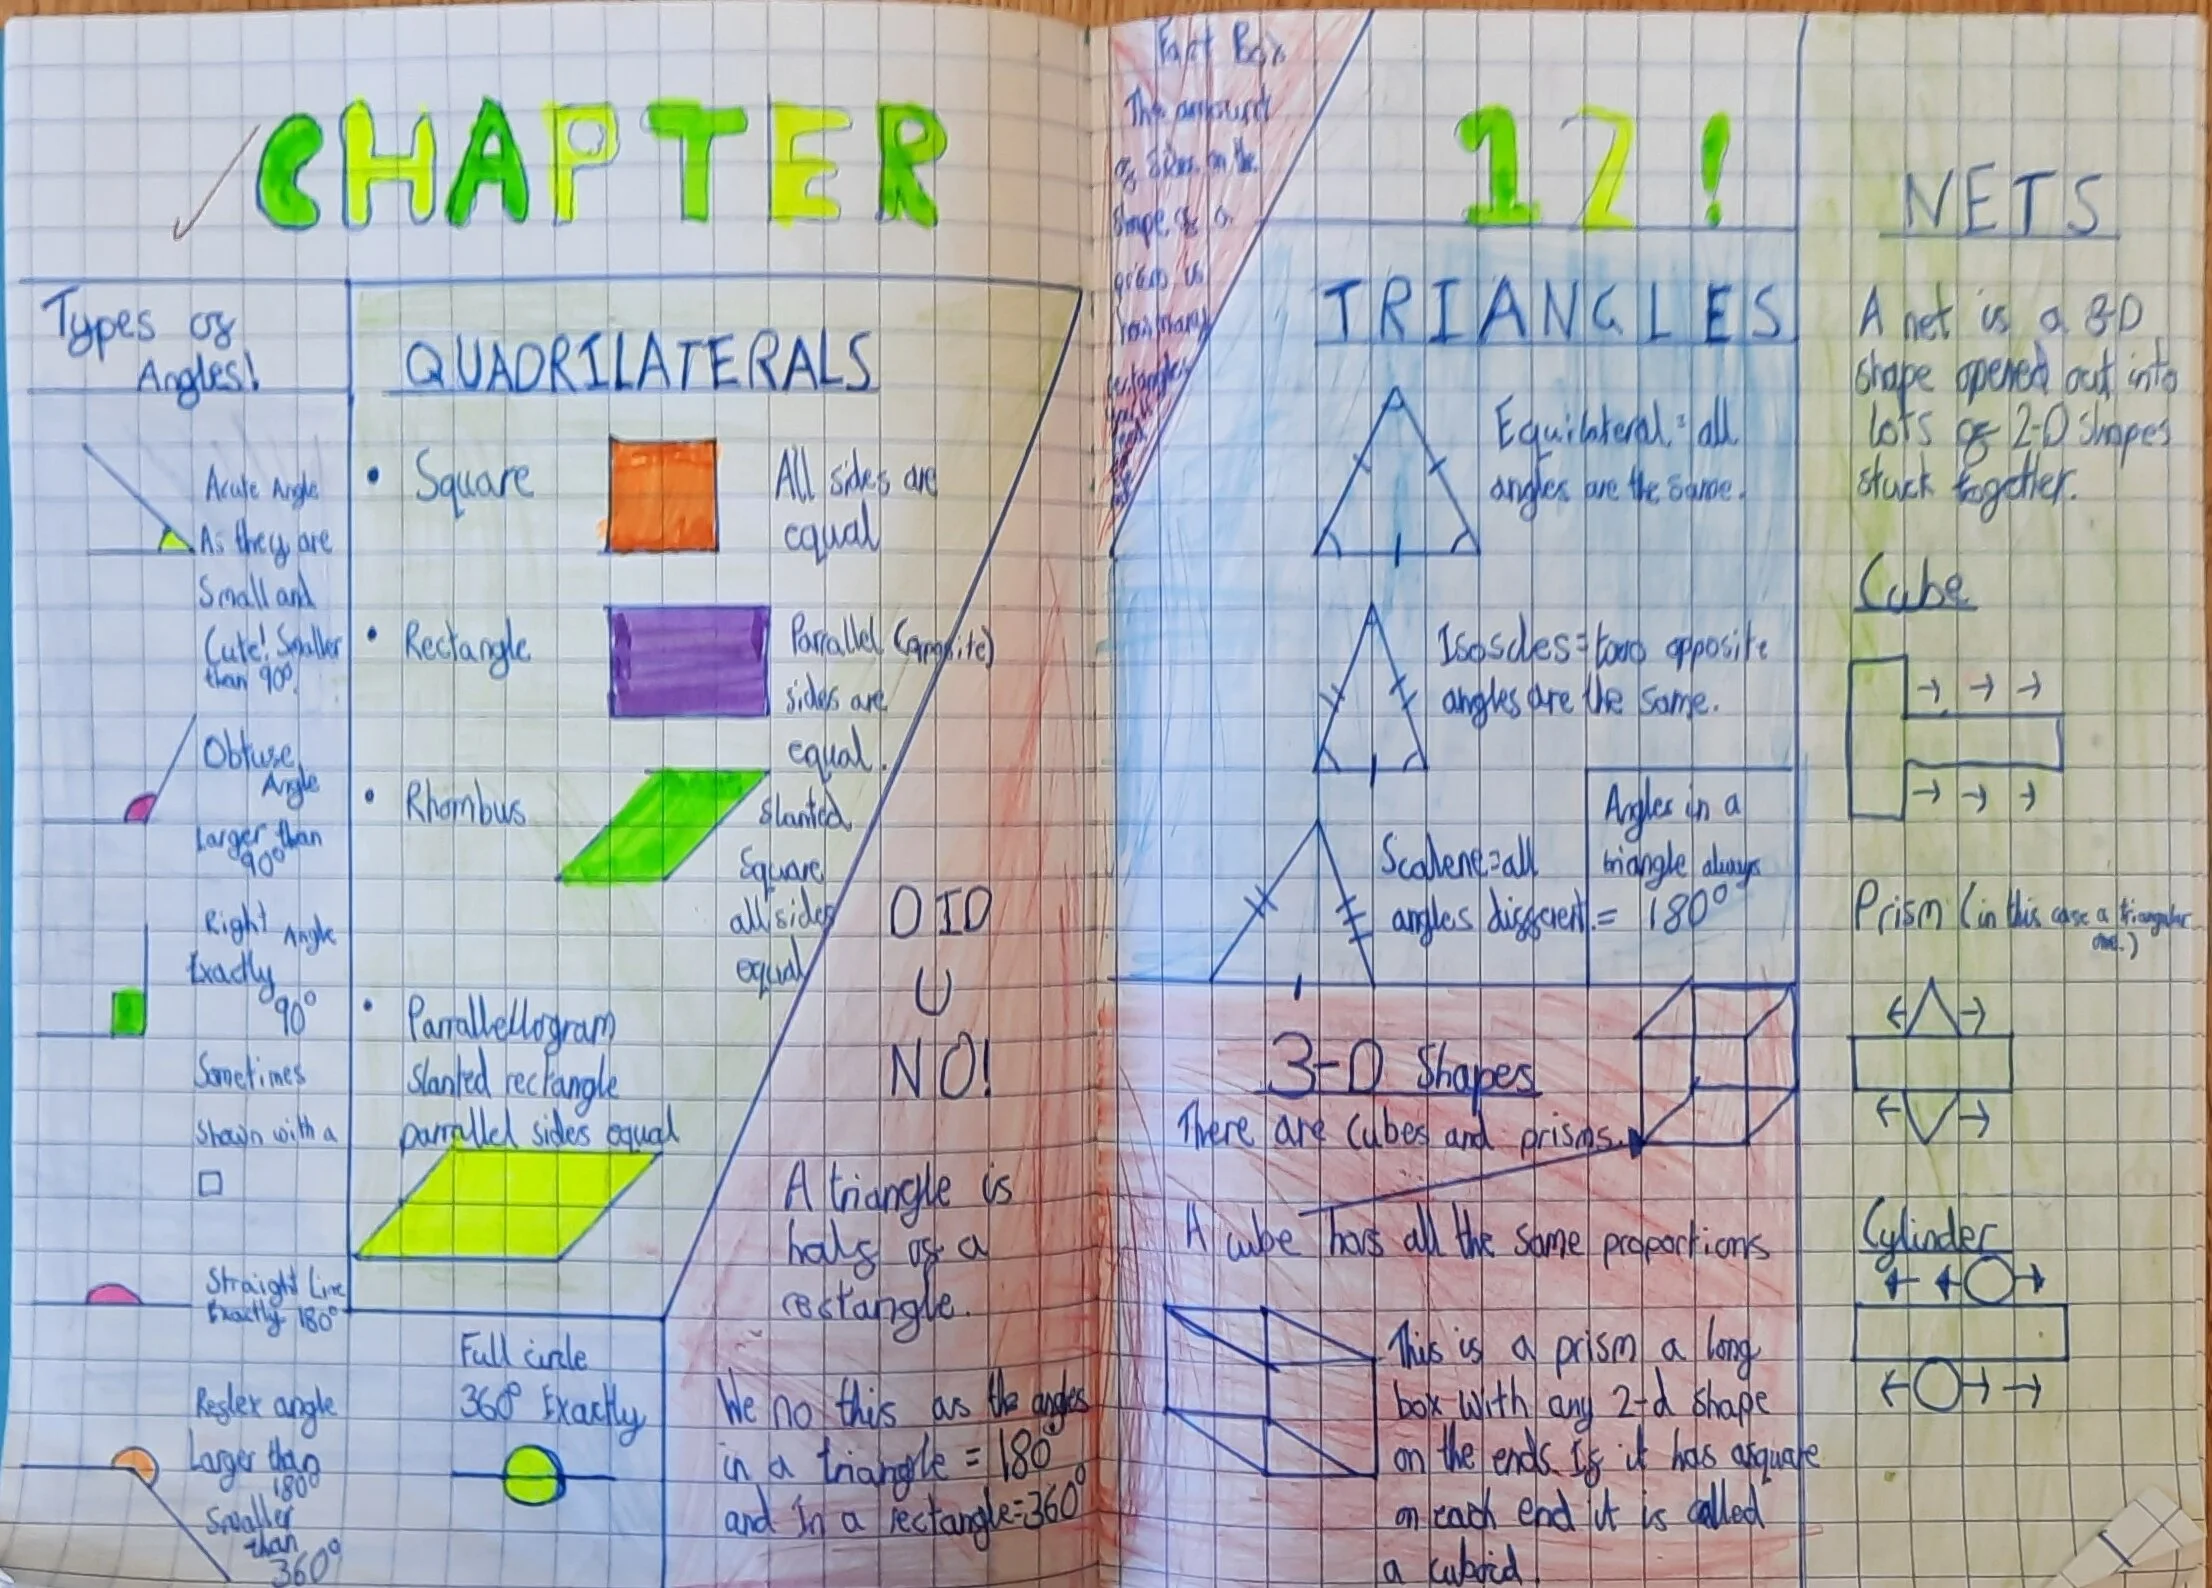 CHAPTER
Types of
Angles!
Acute Angle
As they are
Small and
Cute! Smaller
than 90°
Obtuse
Angle
larger than
90°
Right Angle
Exactly
90°
Sometimes
Shown with a
Straight Line
Exactly 180°
Reflex angle
Larger than
180°
Smaller
than
360°
QUADRILATERALS
• Square
All sides are
equal
• Rectangle
Parrallel (opposite)
sides are
equal.
• Rhombus
Slanted
Square
all sides
equal
• Parrallellogram
Slanted rectangle
parrallel sides equal
Full circle
360° Exactly
DID
U
NO!
A triangle is
half of a
rectangle.
We no this as the angles
in a triangle = 180°
and in a rectangle=360°
Fact Box
The amount
of sides on the
shape of a
prism is
how many
rectangles
12!
TRIANGLES
Equilateral = all
angles are the same.
Isosceles = two opposite
angles are the same.
Scalene = all
angles different.
Angles in a
triangle always
= 180°
3-D Shapes
There are Cubes and prisms.
A cube has all the same proportions
This is a prism a long
box with any 2-d shape
on the ends. If it has a square
on each end it is called
a cuboid.
NETS
A net is a 3-D
shape opened out into
lots of 2-D shapes
stuck together.
Cube
Prism (in this case a triangular
one.)
Cylinder